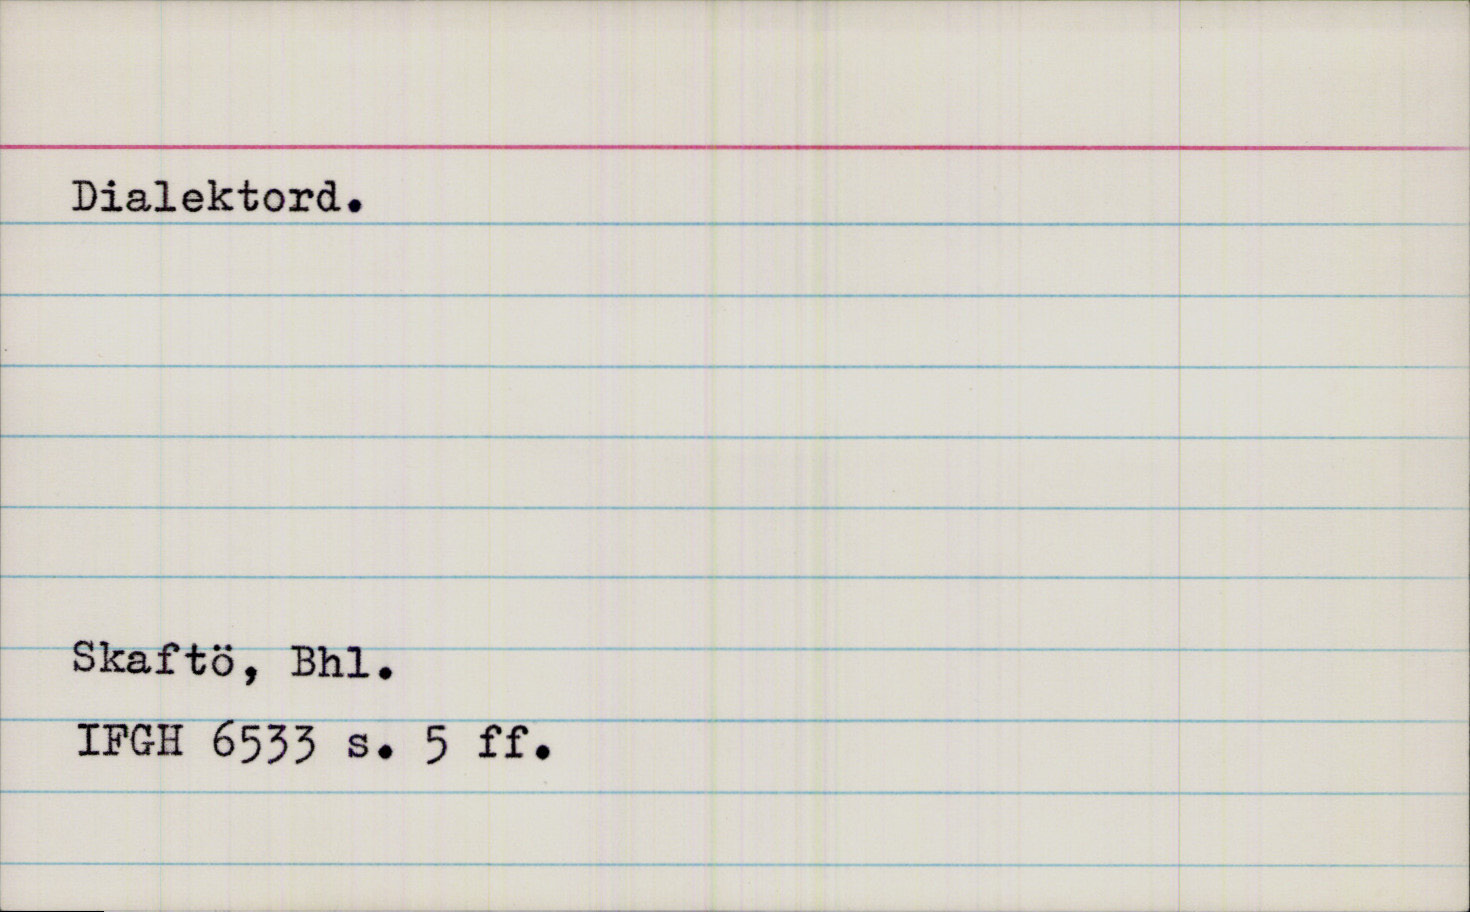 Dialektord.
Skaftö, Bhl.
IFGH 6533 s. 5 ff.